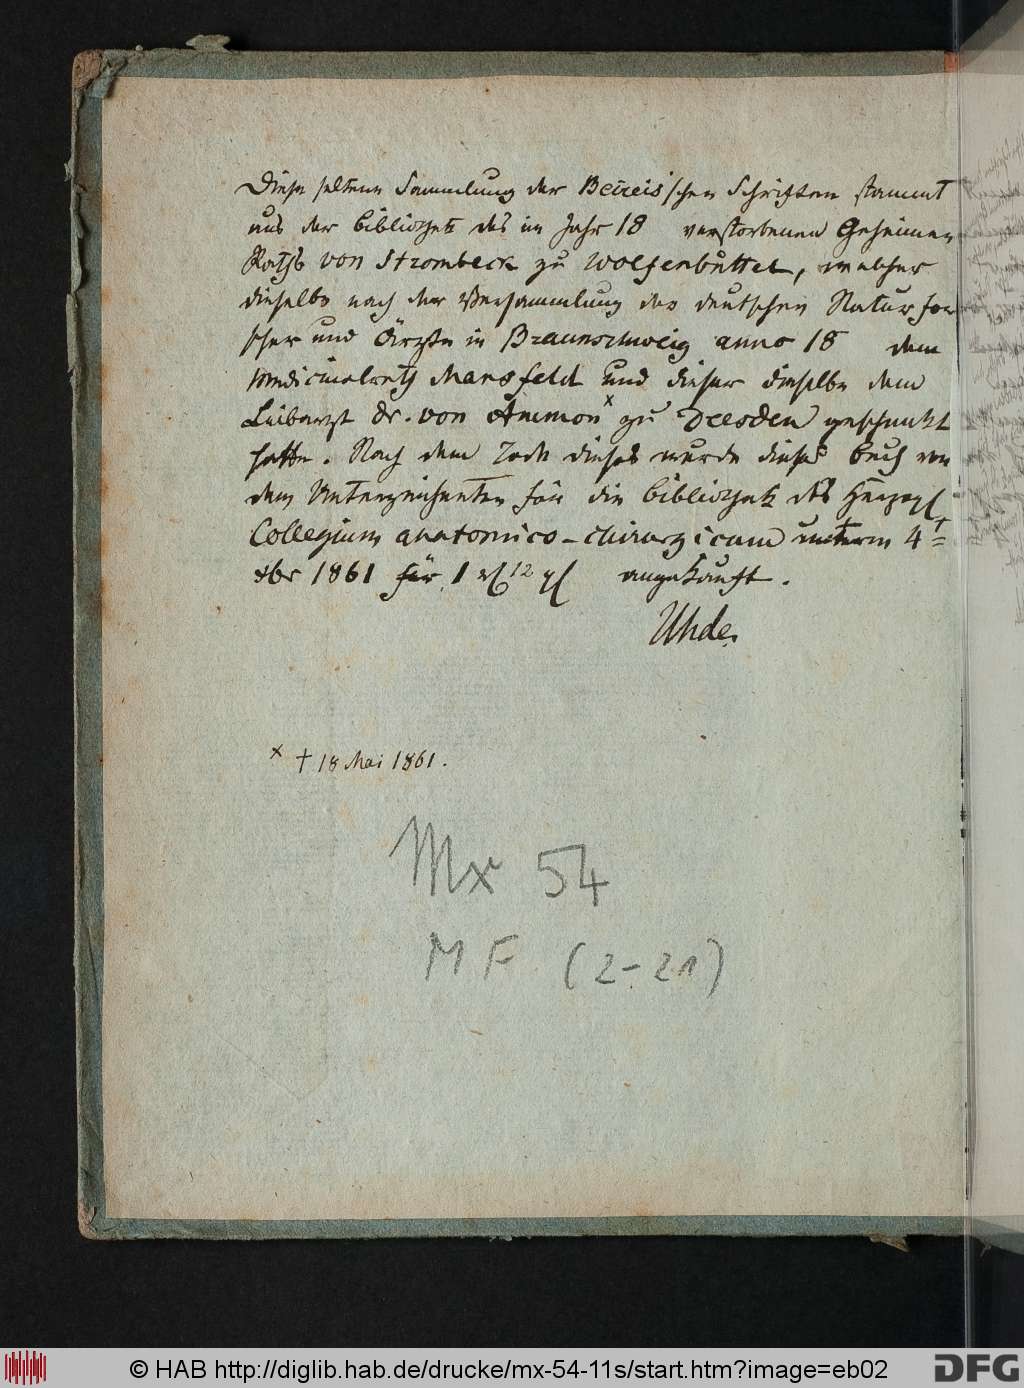 Diese seltene Sammlung der Beireis'schen Schriften stammt
aus der Bibliothek des im Jahr 18 verstorbenen Geheimen
Raths von Strombeck zu Wolfenbüttel, welcher
dieselbe nach der Versammlung der deutschen Naturfor
scher und Ärzte in Braunschweig anno 18 dem
Medicinalrath Mansfeld und dieser dieselbe dem
Leibarzt Dr. von Ammon x zu Dresden geschenkt
hatte. Nach dem Tode dieses wurde dieses Buch von
dem Unterzeichneten für die Bibliothek des Herzogl
Collegium anatomico-chirurgicum unterm 4t
xbr 1861 für 1 12 angekauft.
Uhde.
x † 18 Mai 1861.
Mx 54
MF (2-21)
© HAB http://diglib.hab.de/drucke/mx-54-11s/start.htm?image=eb02
DFG